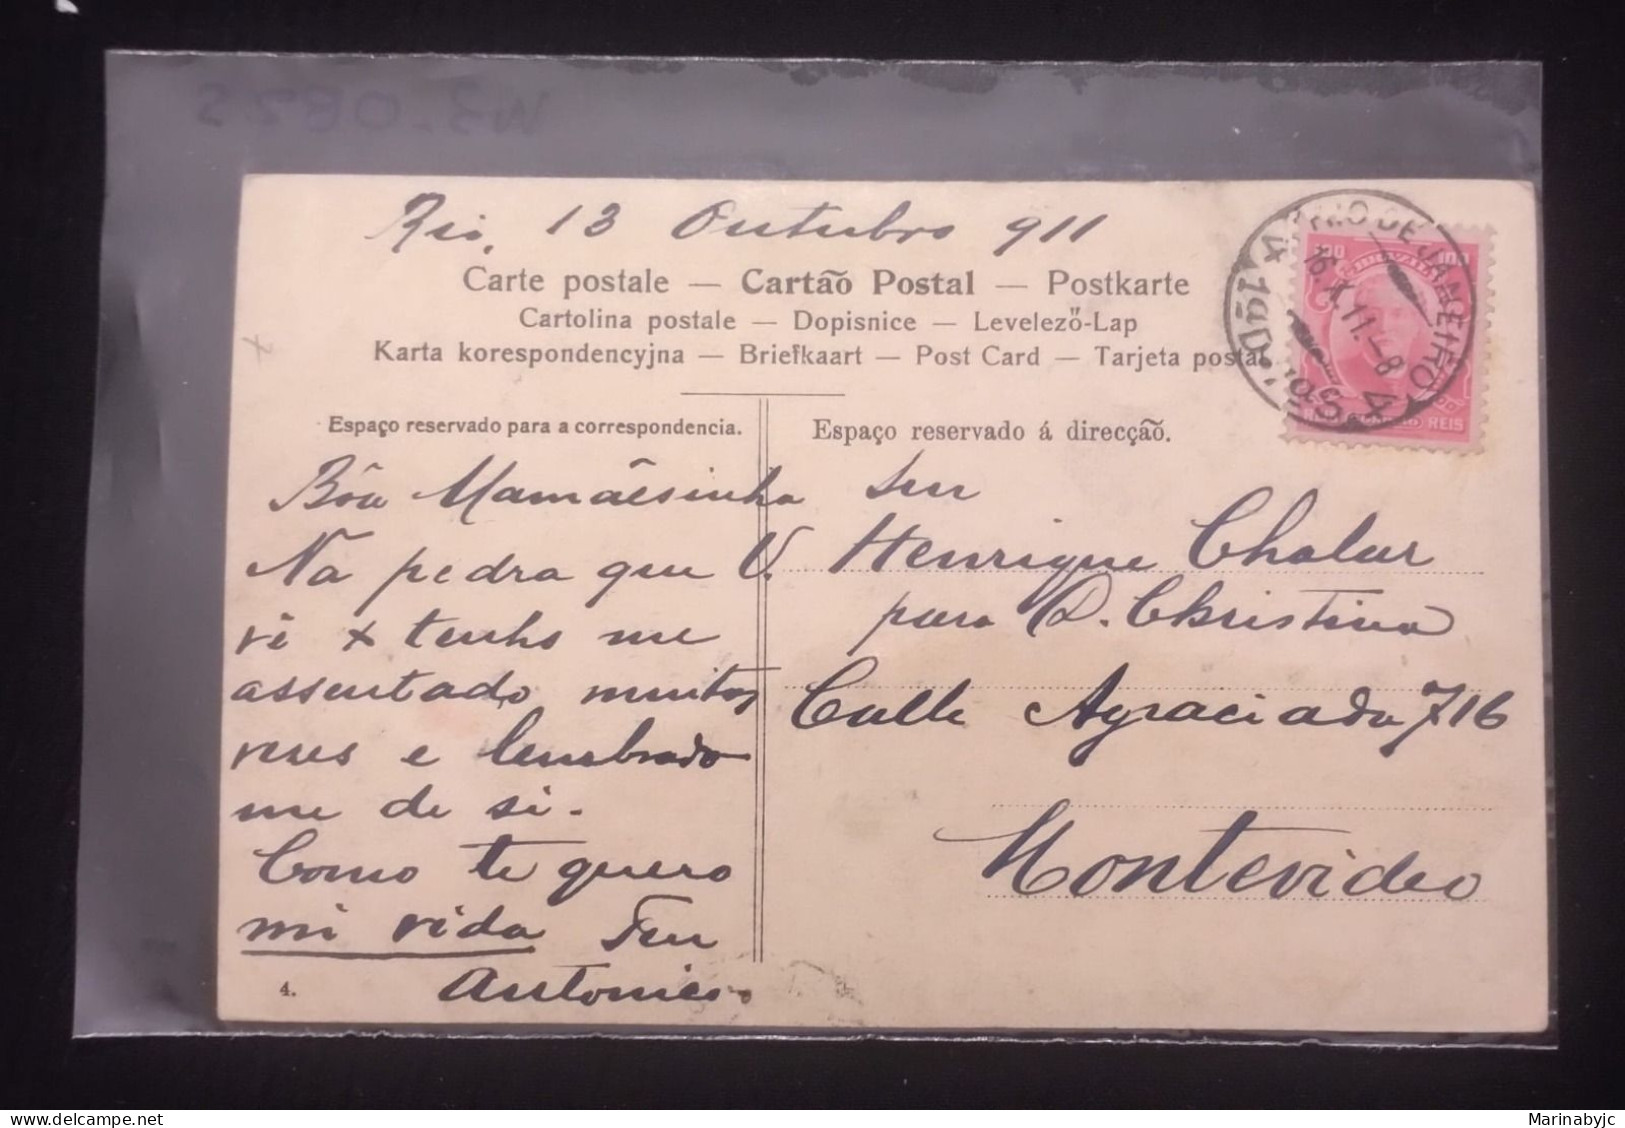 W3-0825
Rio, 13 Outubro 911
Carte postale — Cartão Postal — Postkarte
Cartolina postale — Dopisnice — Levelező-Lap
Karta korespondencyjna — Briefkaart — Post Card — Tarjeta postal
RIO DE JANEIRO
100 BRAZIL 100
REIS
Espaço reservado para a correspondencia.
Bôa Mamãesinha
Na pedra que V.
vê x tenho me
assentado muitas
veses e lembrado
me de si.
Como te quero
mi vida Teu
Antonico.
4.
Espaço reservado á direcção.
Snr
Henrique Chalar
para D. Christina
Calle Agraciada 716
Montevideo
Marinabyjc